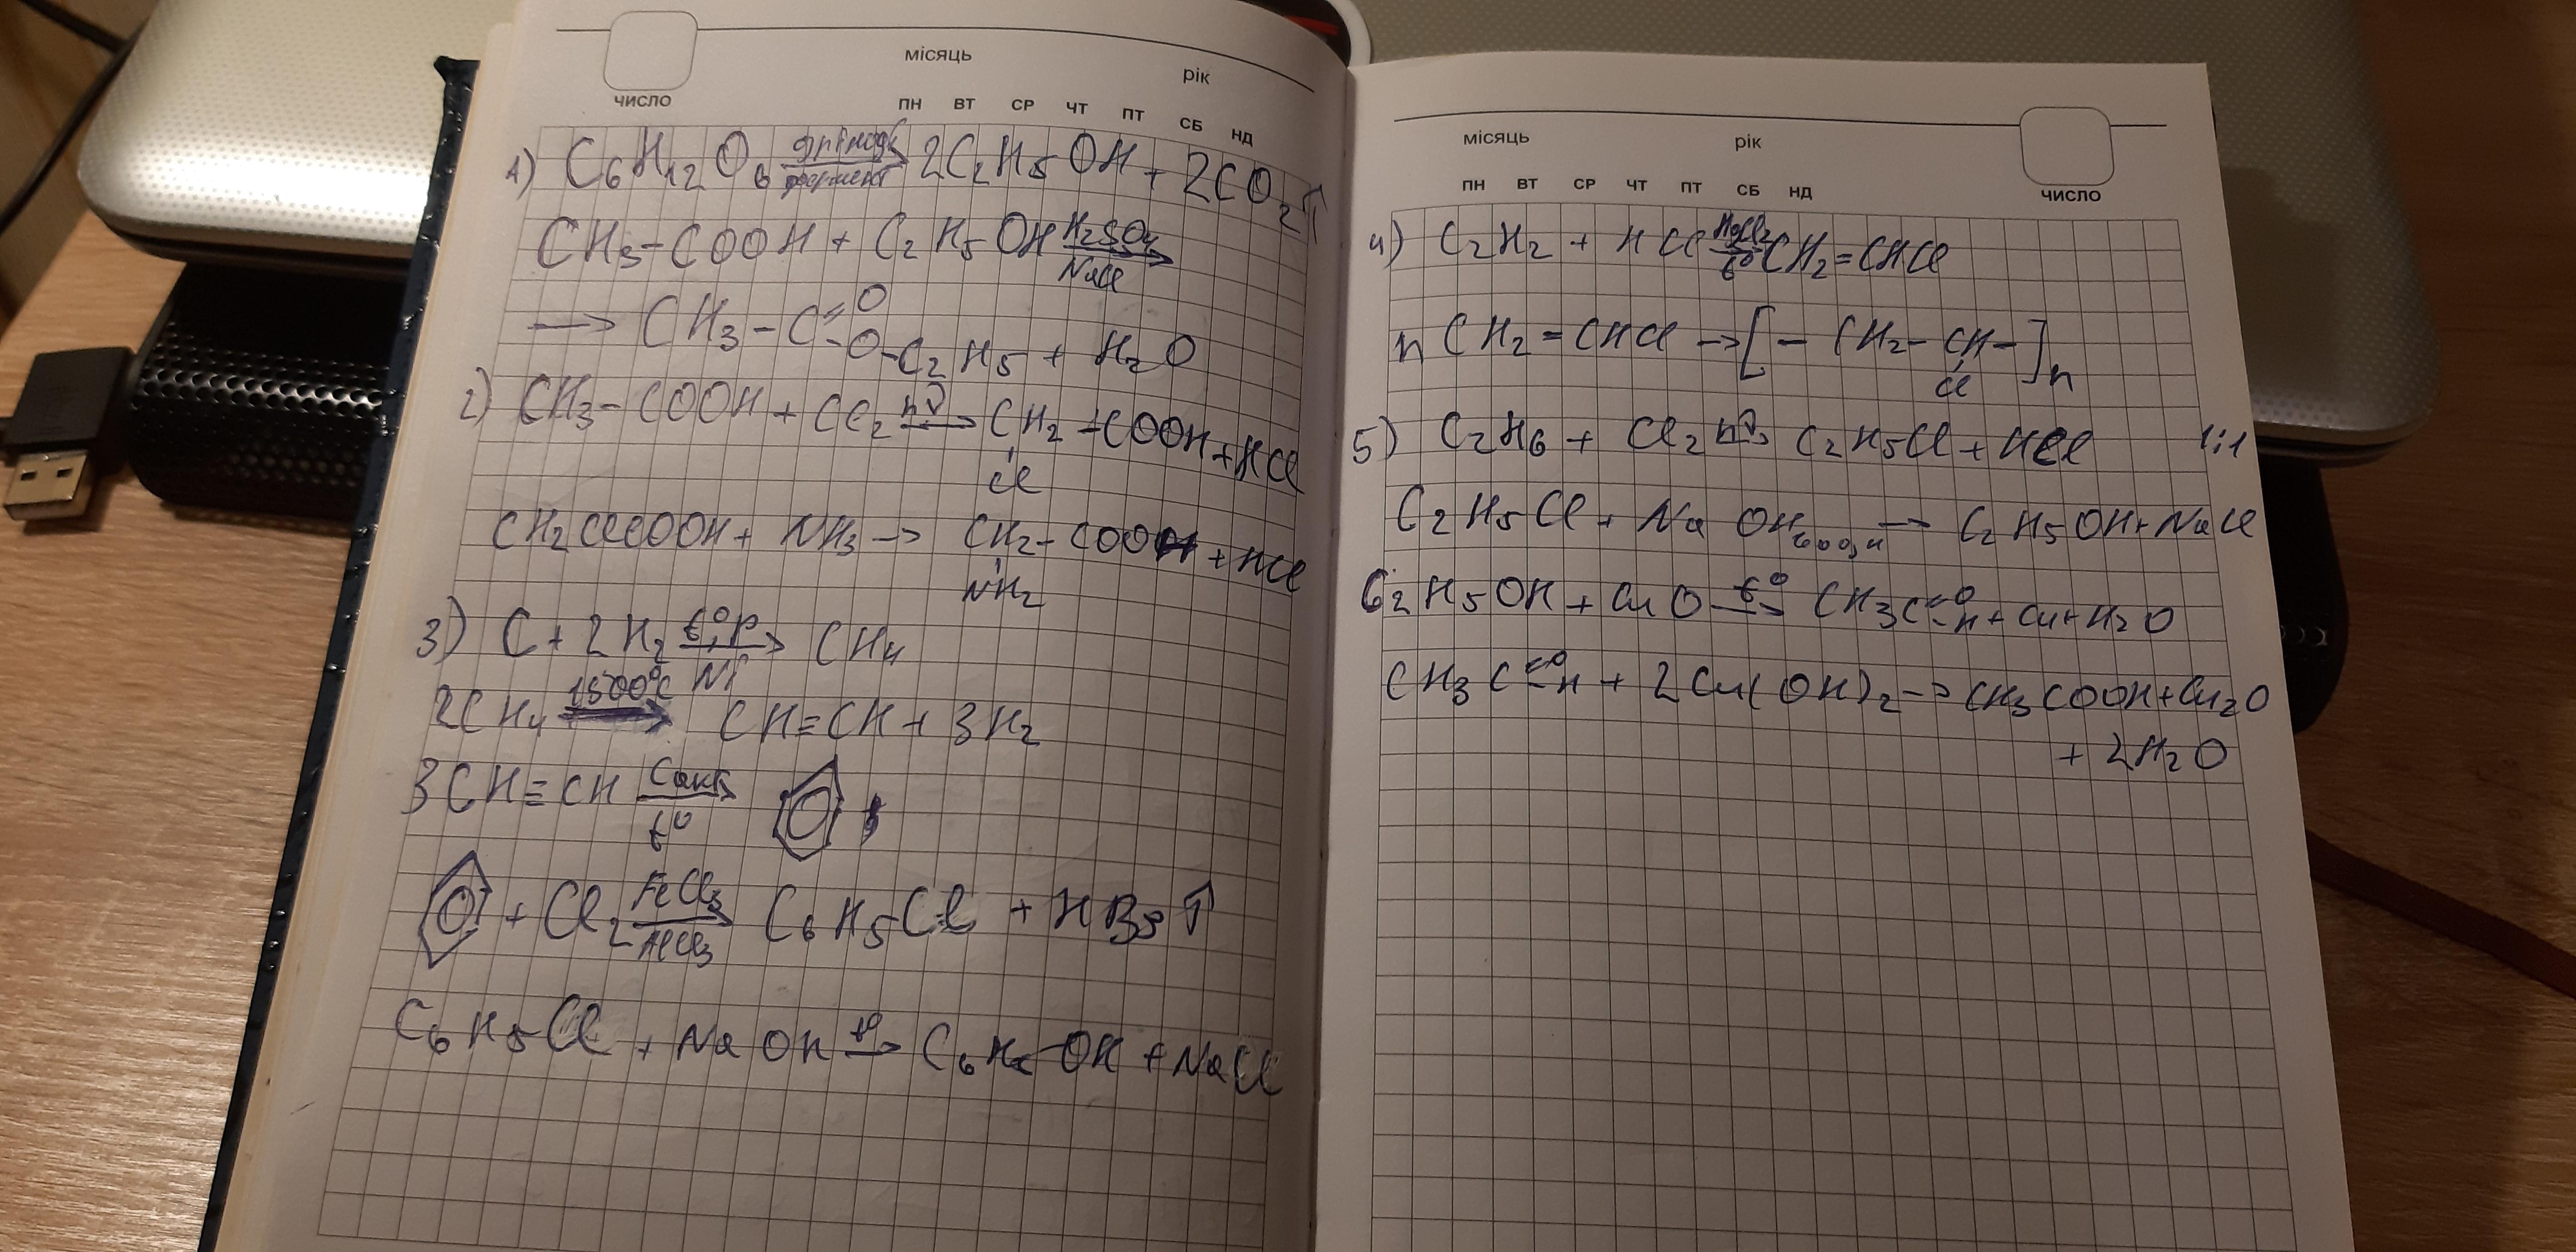 місяць
рік
число
ПН ВТ СР ЧТ ПТ СБ НД
1) C6H12O6 дріжджі фермент → 2C2H5OH + 2CO2↑
CH3-COOH + C2H5OH H2SO4 NaCl →
→ CH3-C=O -O-C2H5 + H2O
2) CH3-COOH + Cl2 hν → CH2-COOH + HCl
Cl
CH2ClCOOH + NH3 → CH2-COOH + HCl
NH2
3) C + 2H2 t°,p Ni → CH4
2CH4 1500°C → CH≡CH + 3H2
3CH≡CH Cакт t° →
+ Cl2 FeCl3 AlCl3 → C6H5Cl + HBr↑
C6H5Cl + NaOH t° → C6H5-OH + NaCl
місяць
рік
ПН ВТ СР ЧТ ПТ СБ НД
число
4) C2H2 + HCl HgCl2 t° → CH2=CHCl
n CH2=CHCl → [-CH2-CH-]n
Cl
5) C2H6 + Cl2 hν → C2H5Cl + HCl 1:1
C2H5Cl + NaOH водн → C2H5OH + NaCl
C2H5OH + CuO t° → CH3C=O -H + Cu + H2O
CH3C=O -H + 2Cu(OH)2 → CH3COOH + Cu2O
+ 2H2O